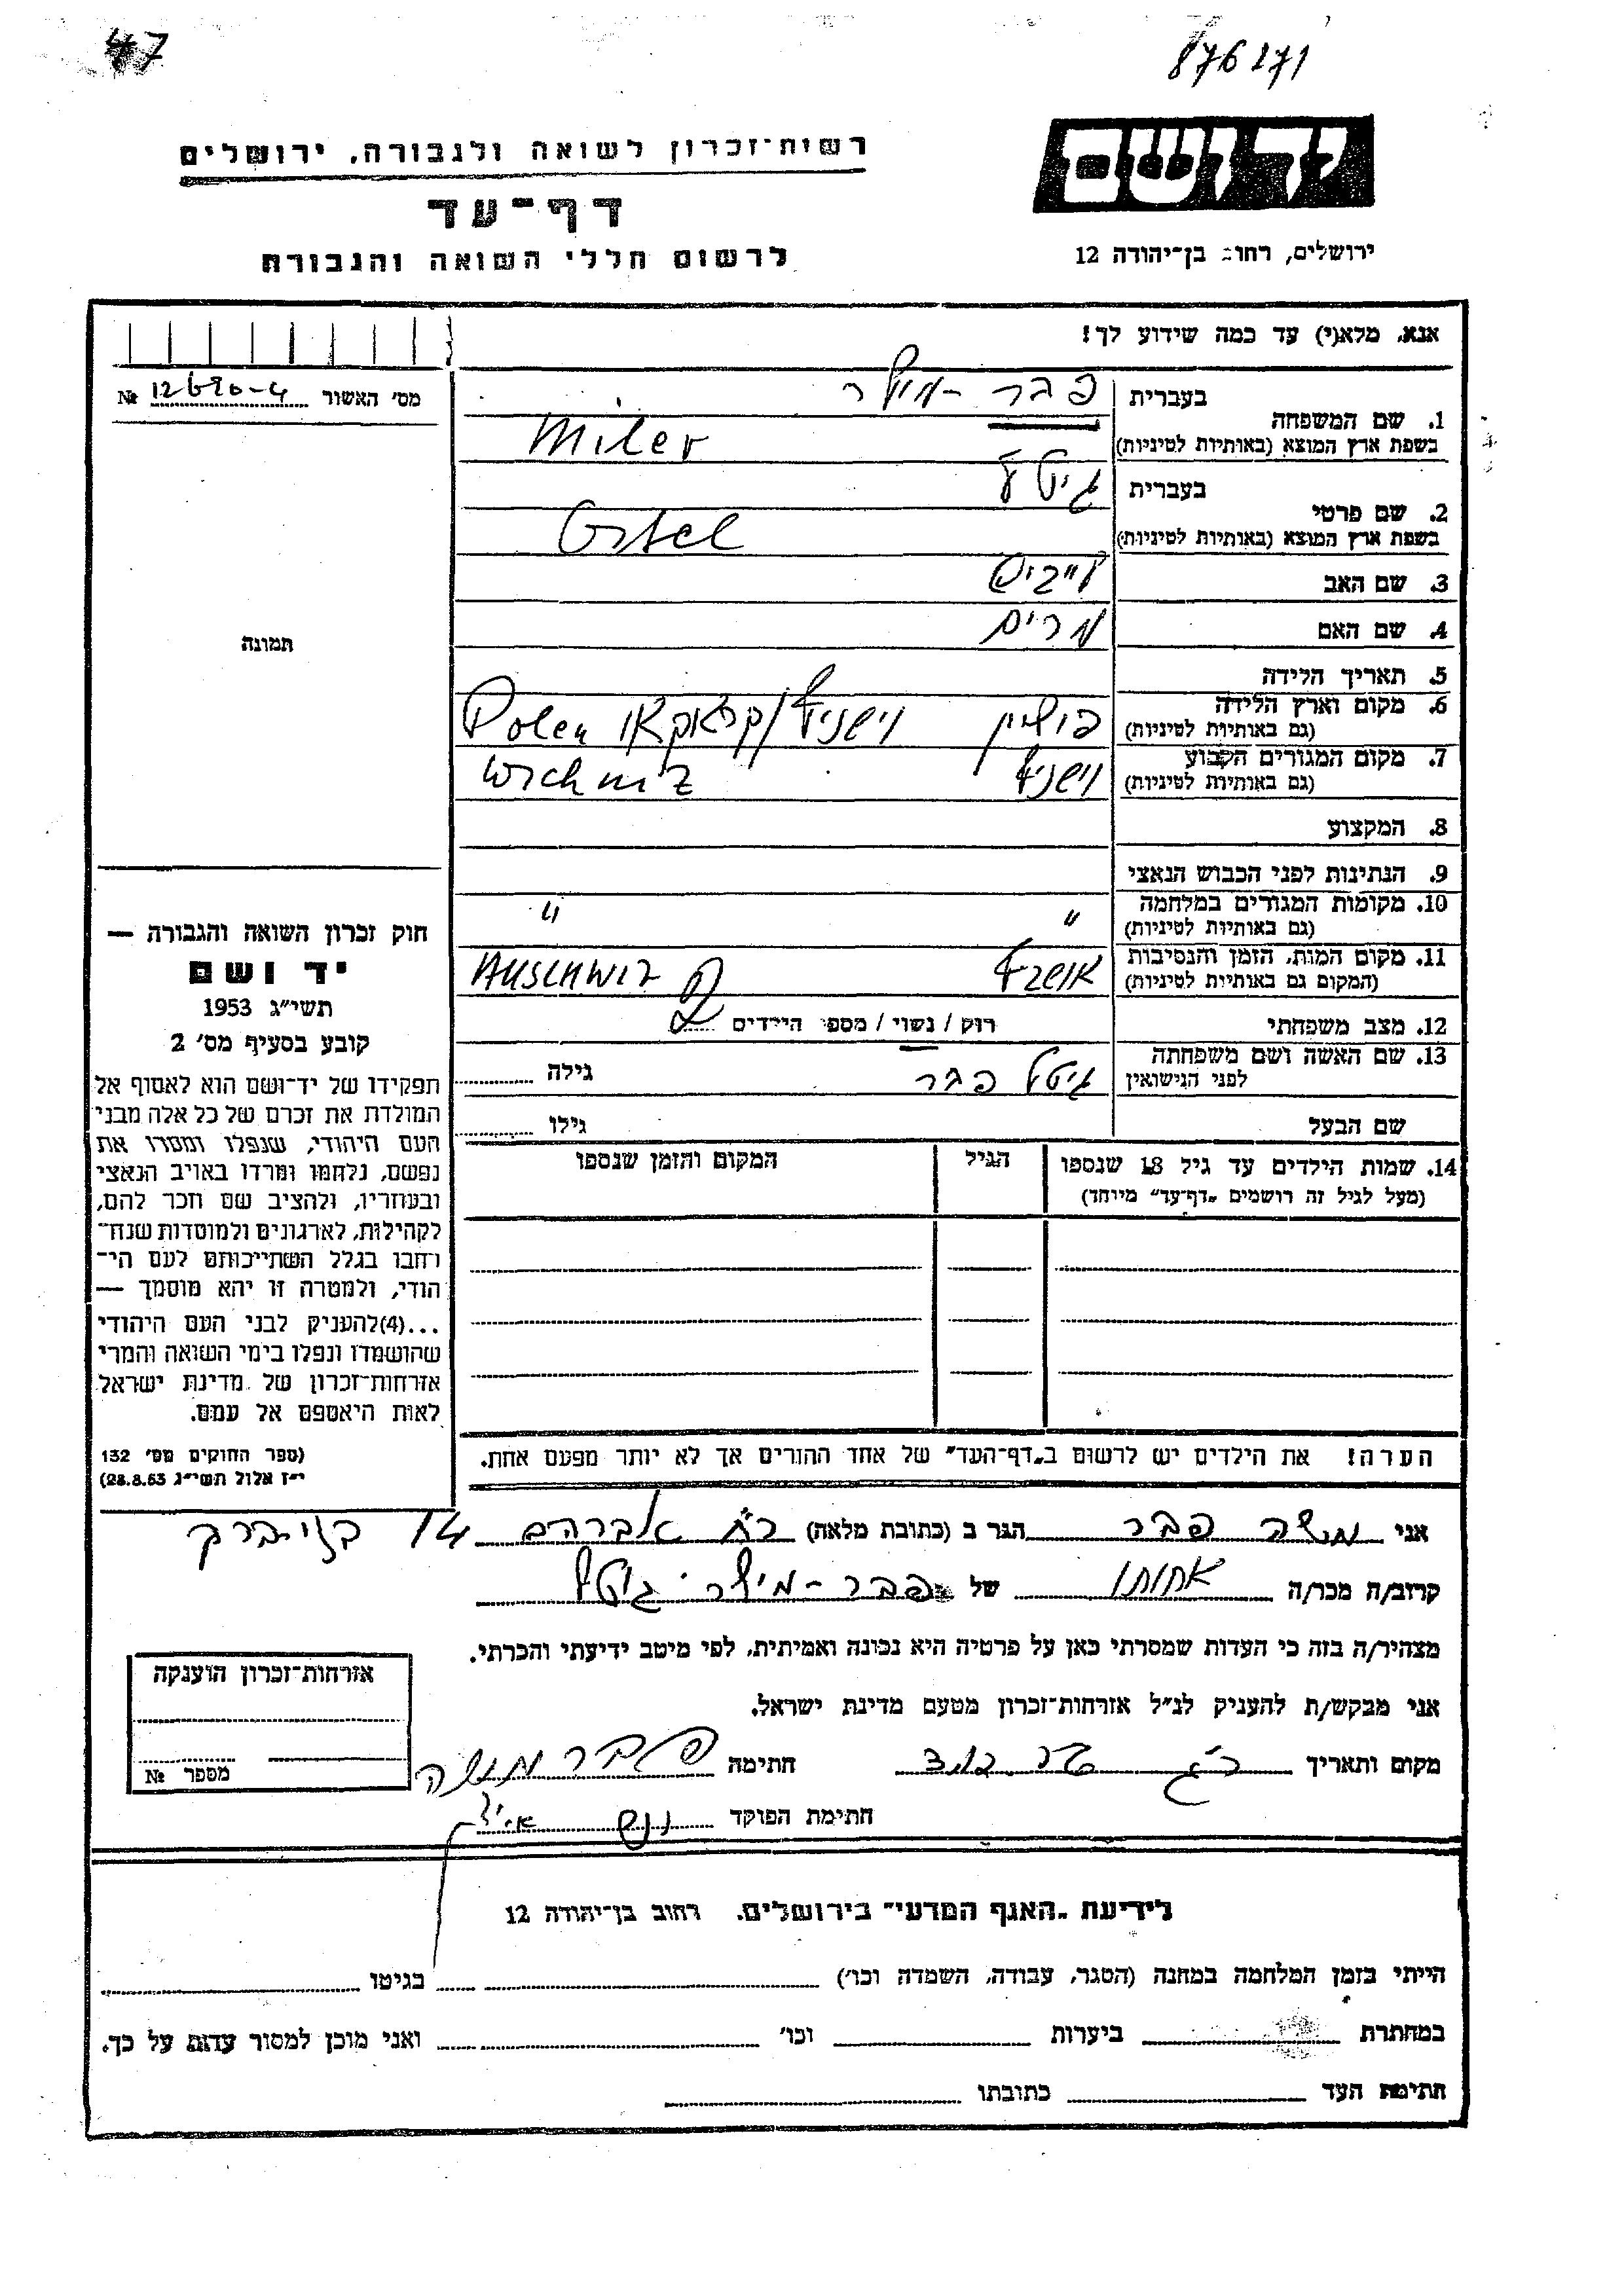 47
876171
יד ושם
רשות־זכרון לשואה ולגבורה, ירושלים
דף־עד
לרשום חללי השואה והגבורה
ירושלים, רחוב בן־יהודה 12
אנא, מלא(י) עד כמה שידוע לך!
מס' האשור № 12690-4
1. שם המשפחה
בעברית פבר - מילר
בשפת ארץ המוצא (באותיות לטיניות) Miler
2. שם פרטי
בעברית
בשפת ארץ המוצא (באותיות לטיניות)
3. שם האב
4. שם האם מרים
5. תאריך הלידה
6. מקום וארץ הלידה
(גם באותיות לטיניות) פולין וישניץ/קראקאו Polen
7. מקום המגורים הקבוע
(גם באותיות לטיניות) וישניץ Wichniz
8. המקצוע
9. הנתינות לפני הכבוש הנאצי
10. מקומות המגורים במלחמה
(גם באותיות לטיניות) " "
11. מקום המות, הזמן והנסיבות
(המקום גם באותיות לטיניות) אושביץ AUSCHWIZ
12. מצב משפחתי רווק / נשוי / מספר הילדים
13. שם האשה ושם משפחתה
לפני הנישואין גיטל פבר גילה
שם הבעל גילו
14. שמות הילדים עד גיל 18 שנספו
(מעל לגיל זה רושמים „דף־עד" מיוחד)
הגיל
המקום והזמן שנספו
הערה! את הילדים יש לרשום ב„דף־העד" של אחד ההורים אך לא יותר מפעם אחת.
תמונה
חוק זכרון השואה והגבורה —
יד ושם
תשי"ג 1953
קובע בסעיף מס' 2
תפקידו של יד־ושם הוא לאסוף אל
המולדת את זכרם של כל אלה מבני
העם היהודי, שנפלו ומסרו את
נפשם, נלחמו ומרדו באויב הנאצי
ובעוזריו, ולהציב שם וזכר להם,
לקהילות, לארגונים ולמוסדות שנח־
רבו בגלל השתייכותם לעם הי־
הודי, ולמטרה זו יהא מוסמך —
...(4)להעניק לבני העם היהודי
שהושמדו ונפלו בימי השואה והמרי
אזרחות־זכרון של מדינת ישראל
לאות היאספם אל עמם.
(ספר החוקים מס' 132
י"ז אלול תשי"ג 28.8.53)
אני משה פבר הגר ב (כתובת מלאה) רח' אברהם 14 בני ברק
קרוב/ה מכר/ה אחותו של פבר - מילר גיטל
מצהיר/ה בזה כי העדות שמסרתי כאן על פרטיה היא נכונה ואמיתית, לפי מיטב ידיעתי והכרתי.
אני מבקש/ת להעניק לנ"ל אזרחות־זכרון מטעם מדינת ישראל.
מקום ותאריך חתימה פבר משה
חתימת הפוקד
אזרחות־זכרון הוענקה
מספר №
לידיעת „האגף המדעי" בירושלים. רחוב בן־יהודה 12
הייתי בזמן המלחמה במחנה (הסגר, עבודה, השמדה וכו') בגיטו
במחתרת ביערות וכו' ואני מוכן למסור עדות על כך.
חתימת העד כתובתו